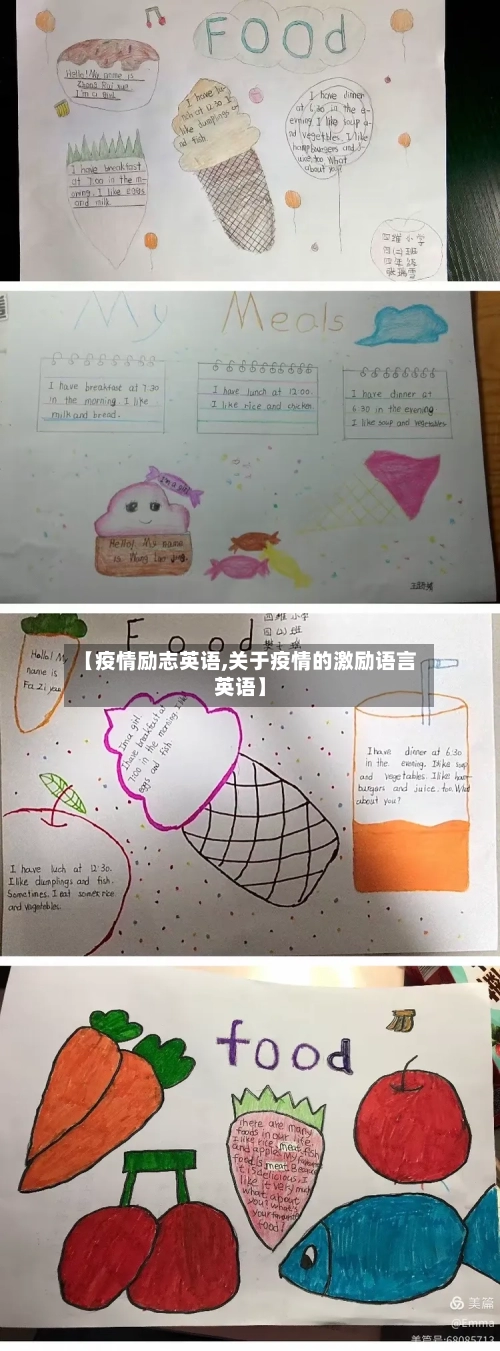 Food
Hello! My name is
I'm a girl.
I have lu-
nch at 12:30. I
like dumplings a-
nd fish.
I have dinner
at 6:30 in the e-
vening. I like soup a-
nd vegetables. I like
hamburgers and j-
uice, too. What
about you?
I have breakfast
at 7:00 in the m-
orning. I like eggs
and milk.
四维小学
四(2)班
My Meals
I have breakfast at 7:30
in the morning. I like
milk and bread.
I have lunch at 12:00.
I like rice and chicken
I have dinner at
6:30 in the evening
I like soup and vegetables
I'm a girl
Hello! My name
is Wang
Food
四维小学
四(2)班
Hello! My
name is
【疫情励志英语,关于疫情的激励语言
英语】
I'm a girl.
I have breakfast at
7:00 in the morning. I like
eggs and fish
I have dinner at 6:30
in the evening. I like soup
and vegetables. I like ham-
burgers and juice, too. What
about you?
I have luch at 12:30.
I like dumplings and fish.
Sometimes. I eat some rice
and vegetables.
food
There are many
foods in our life.
I like rice, meat, fish
and apples. My favourite
food is meat. Because
it is delicious. I
like it very much
what about
you? what's
your favourite
food?
美篇
@Emma
美篇号:68085713